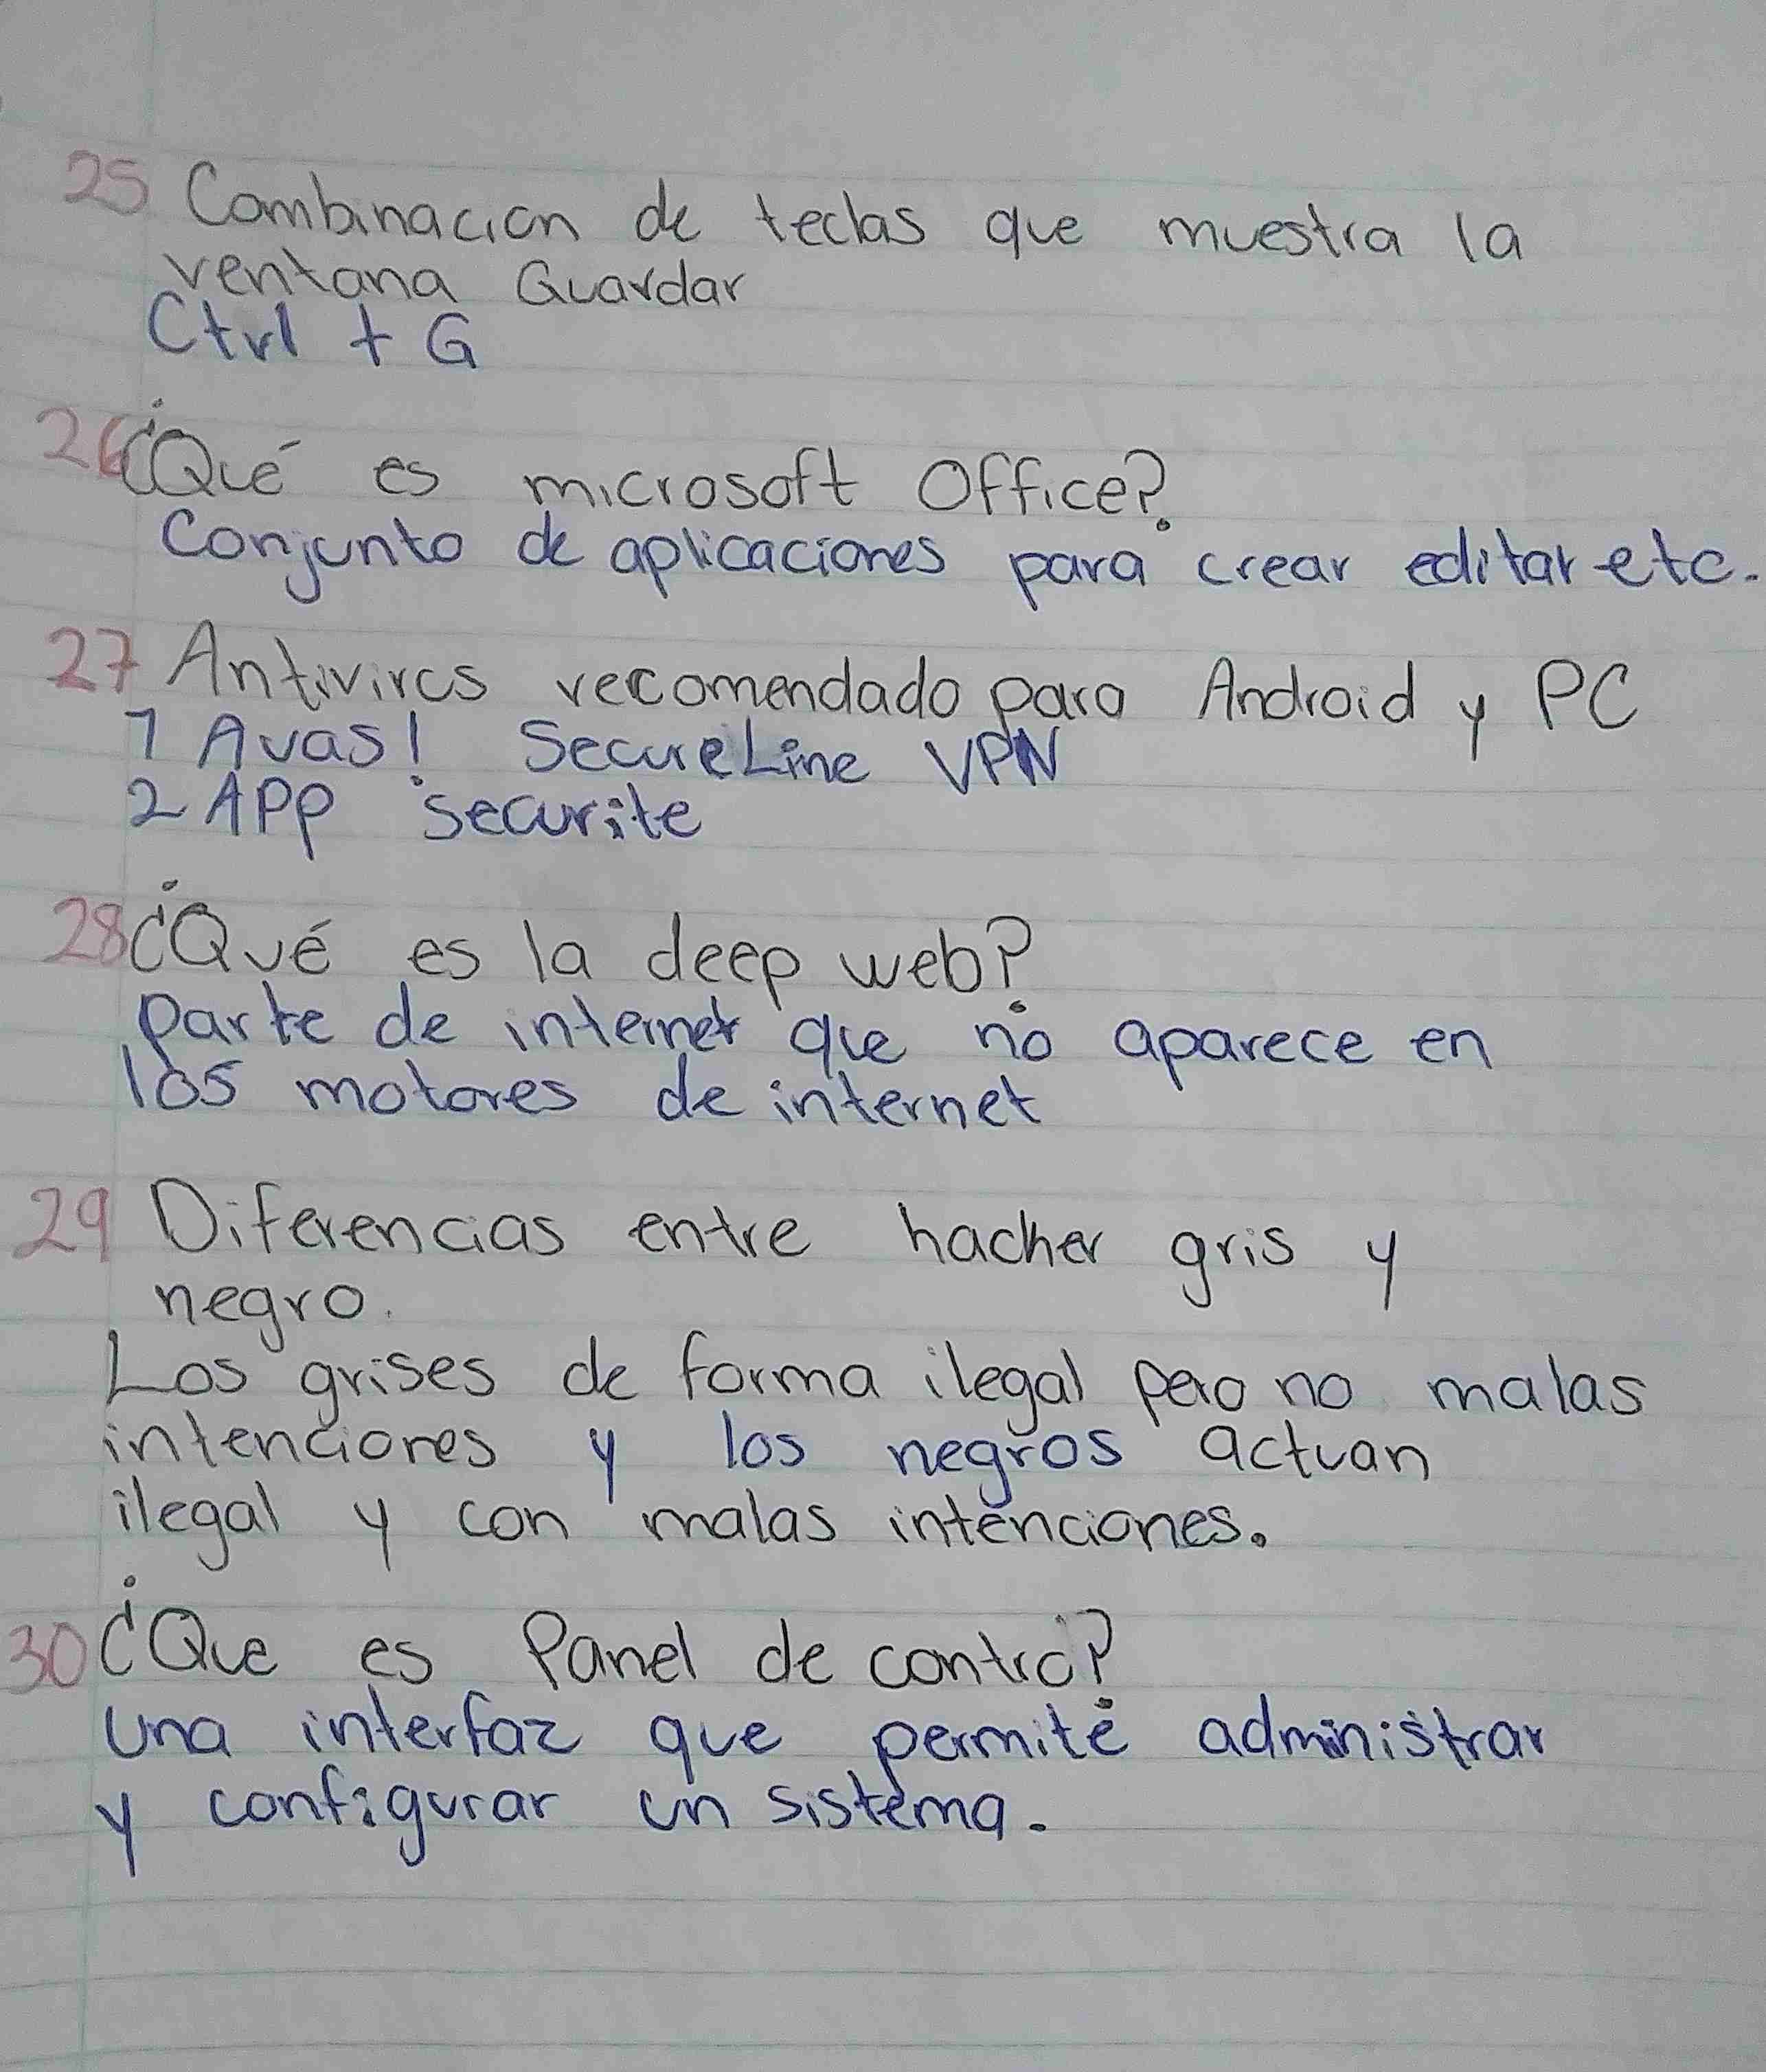 25 Combinacion de teclas que muestra la
ventana Guardar
Ctrl + G
26 ¿Qué es microsoft Office?
Conjunto de aplicaciones para crear editar etc.
27 Antivirus recomendado para Android y PC
1 Avas! SecureLine VPN
2 APP securite
28 ¿Qué es la deep web?
parte de internet que no aparece en
los motores de internet
29 Diferencias entre hacker gris y
negro.
Los grises de forma ilegal pero no malas
intenciones y los negros actuan
ilegal y con malas intenciones.
30 ¿Que es Panel de control?
una interfaz que permite administrar
y configurar un sistema.